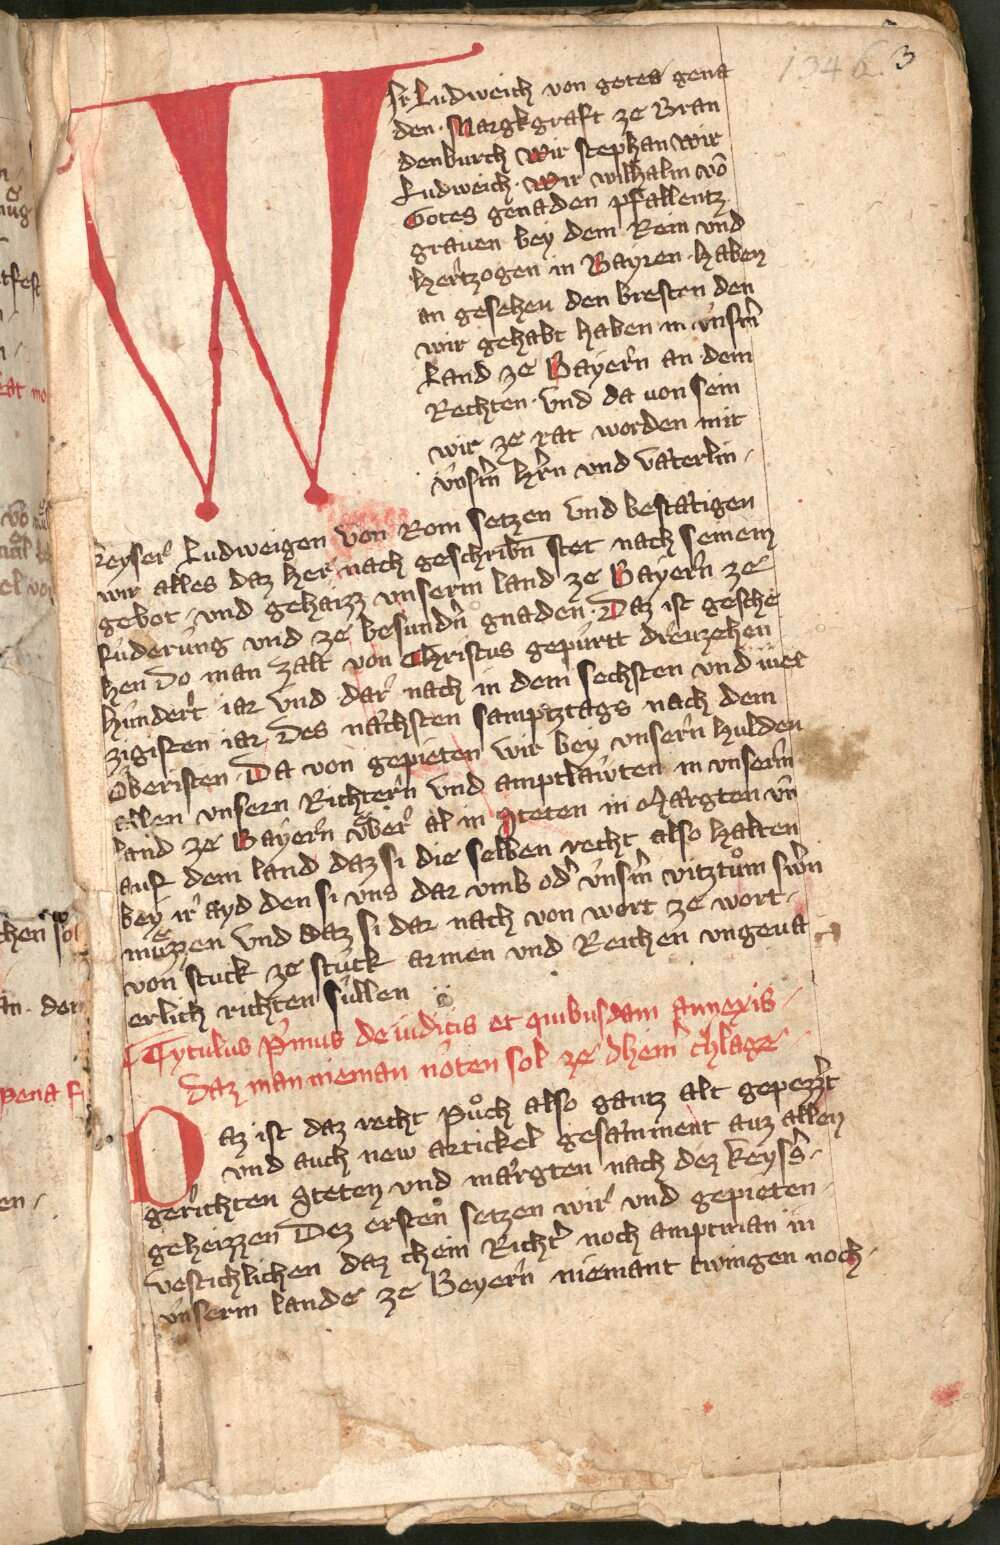 1346. 3
WIr Ludweich von gotes gena
den · Margkgraff ze Bran
denburch wir stephan wir
Ludweich · wir wilhalm vō
Gotes genaden pfallentz
graven bey dem Rein vnd
hertzogen in Bayren · haben
an gesehen den bresten den
wir gehabt haben in vnsm̄
Land ze Bayern an dem
Rechten · vnd da uon sein
wir ze rat worden mit
vnsm̄ hr̄n vnd vaterlin ·
keyser Ludweigen von Rom setzen vnd bestatigen
wir alles daz her nach geschribn̄ stet nach seinem
gebot · vnd gehaizz vnserm land ze Bayern ze
fuderung vnd ze besundn̄ gnaden · Daz ist gesche
hen do man zalt von Christus gepurtt dreuzehen
hundert iar vnd dar nach in dem sechsten vnd vier
zigisten iar Des nachsten samptztags nach dem
Oberisten · Da von gepieten wir bey vnsern hulden
allen vnsern Richtern vnd amptlawten in vnserm
land ze Bayern vber al in steten in Margten vn̄
auf dem land daz si die selben recht also halten
bey ir ayd den si vns dar vmb od' vnsm̄ vitztum swn
muzzen vnd daz si dar nach von wort ze wort ·
von stuck ze stuck armen vnd Reichen vngeua
erlich richten sullen
Tytulus p'mus de iudicis et quibusdam annexis ·
Daz man nieman noten sol ze dhein' chlage
Daz ist daz recht Puͦch also gantz alt gepezzt
vnd auch new artickel gesamment auz allen
gerichten steten vnd margten nach dez keyss ·
geheizzen Dez ersten setzen wir vnd gepieten ·
vestichlichen daz chein Richt' noch amptman in
vnserm lande ze Beyern niemant twingen noch ·